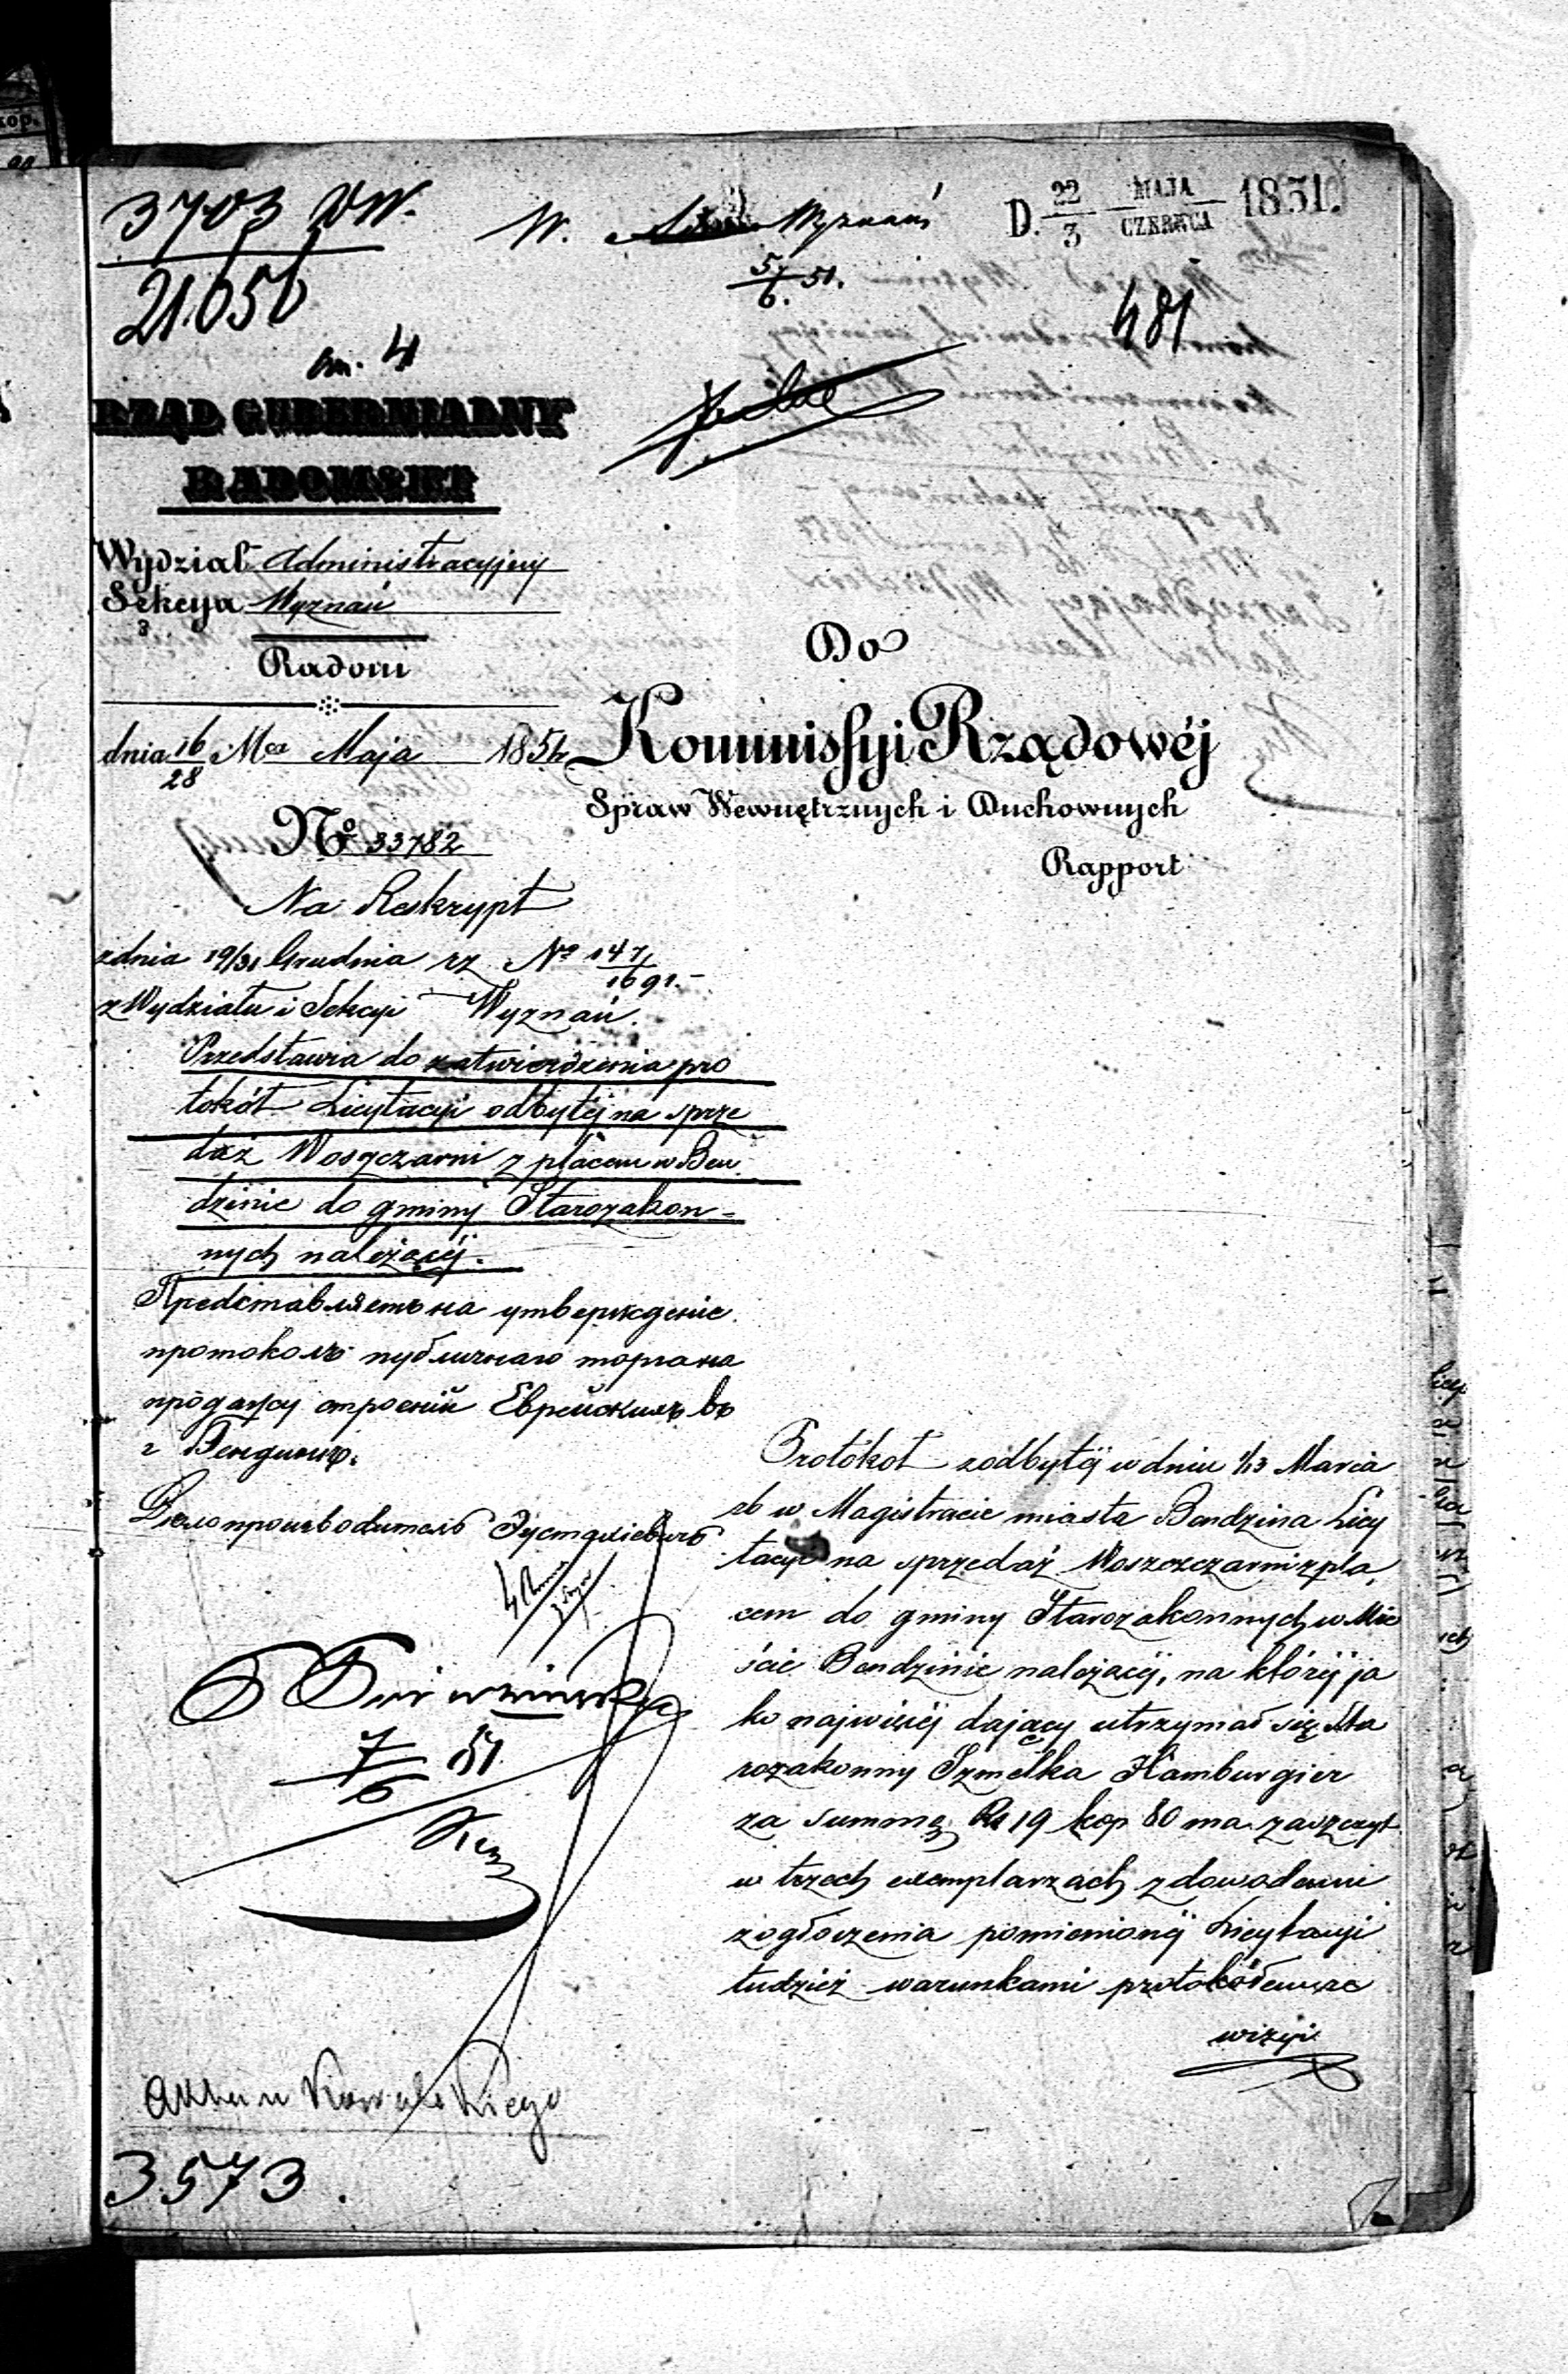 3703 DW.
21656
W. Wyznań
5/6. 51.
D. 22/3 MAJA/CZERWCA 1851.
481
an. 4
RZĄD GUBERNIALNY
RADOMSKI
Wydział Administracyjny
Sekcya Wyznań
3
Radom
dnia 16/28 Mca Maja 1851
No 33782
Do
Kommissyi Rządowéj
Spraw Wewnętrznych i Duchownych
Rapport
Na Reskrypt
z dnia 19/31 Grudnia rz No 147/1691.-
z Wydziału i Sekcyi Wyznań.
Przedstawia do zatwierdzenia pro
tokół Licytacyi odbytéj na sprze
daż Woszczarni z placem w Ben
dzinie do gminy Starozakon=
nych należącéj.
Представляетъ на утвержденіе
протоколъ публичнаго торга на
продажу строеній Еврейскихъ въ
г Бендинѣ.
Дѣлопроизводитель
7/6 51
Protokół z odbytéj w dniu 1/13 Marca
rb w Magistracie miasta Bendzina Licy
tacyi na sprzedaż Woszczarni z pla
cem do gminy Starozakonnych w Mie
ście Bendzinie należącéj, na któréj ja
ko najwięcéj dający utrzymał się Sta
rozakonny Szmelka Hamburgier
za summę Rs 19 kop 80 ma zaszczyt
w trzech exemplarzach z dowodami
z ogłoszenia pomienionéj Licytacyi
tudzież warunkami protokółem re
wizyi
Akta u Kowalskiego
3573.